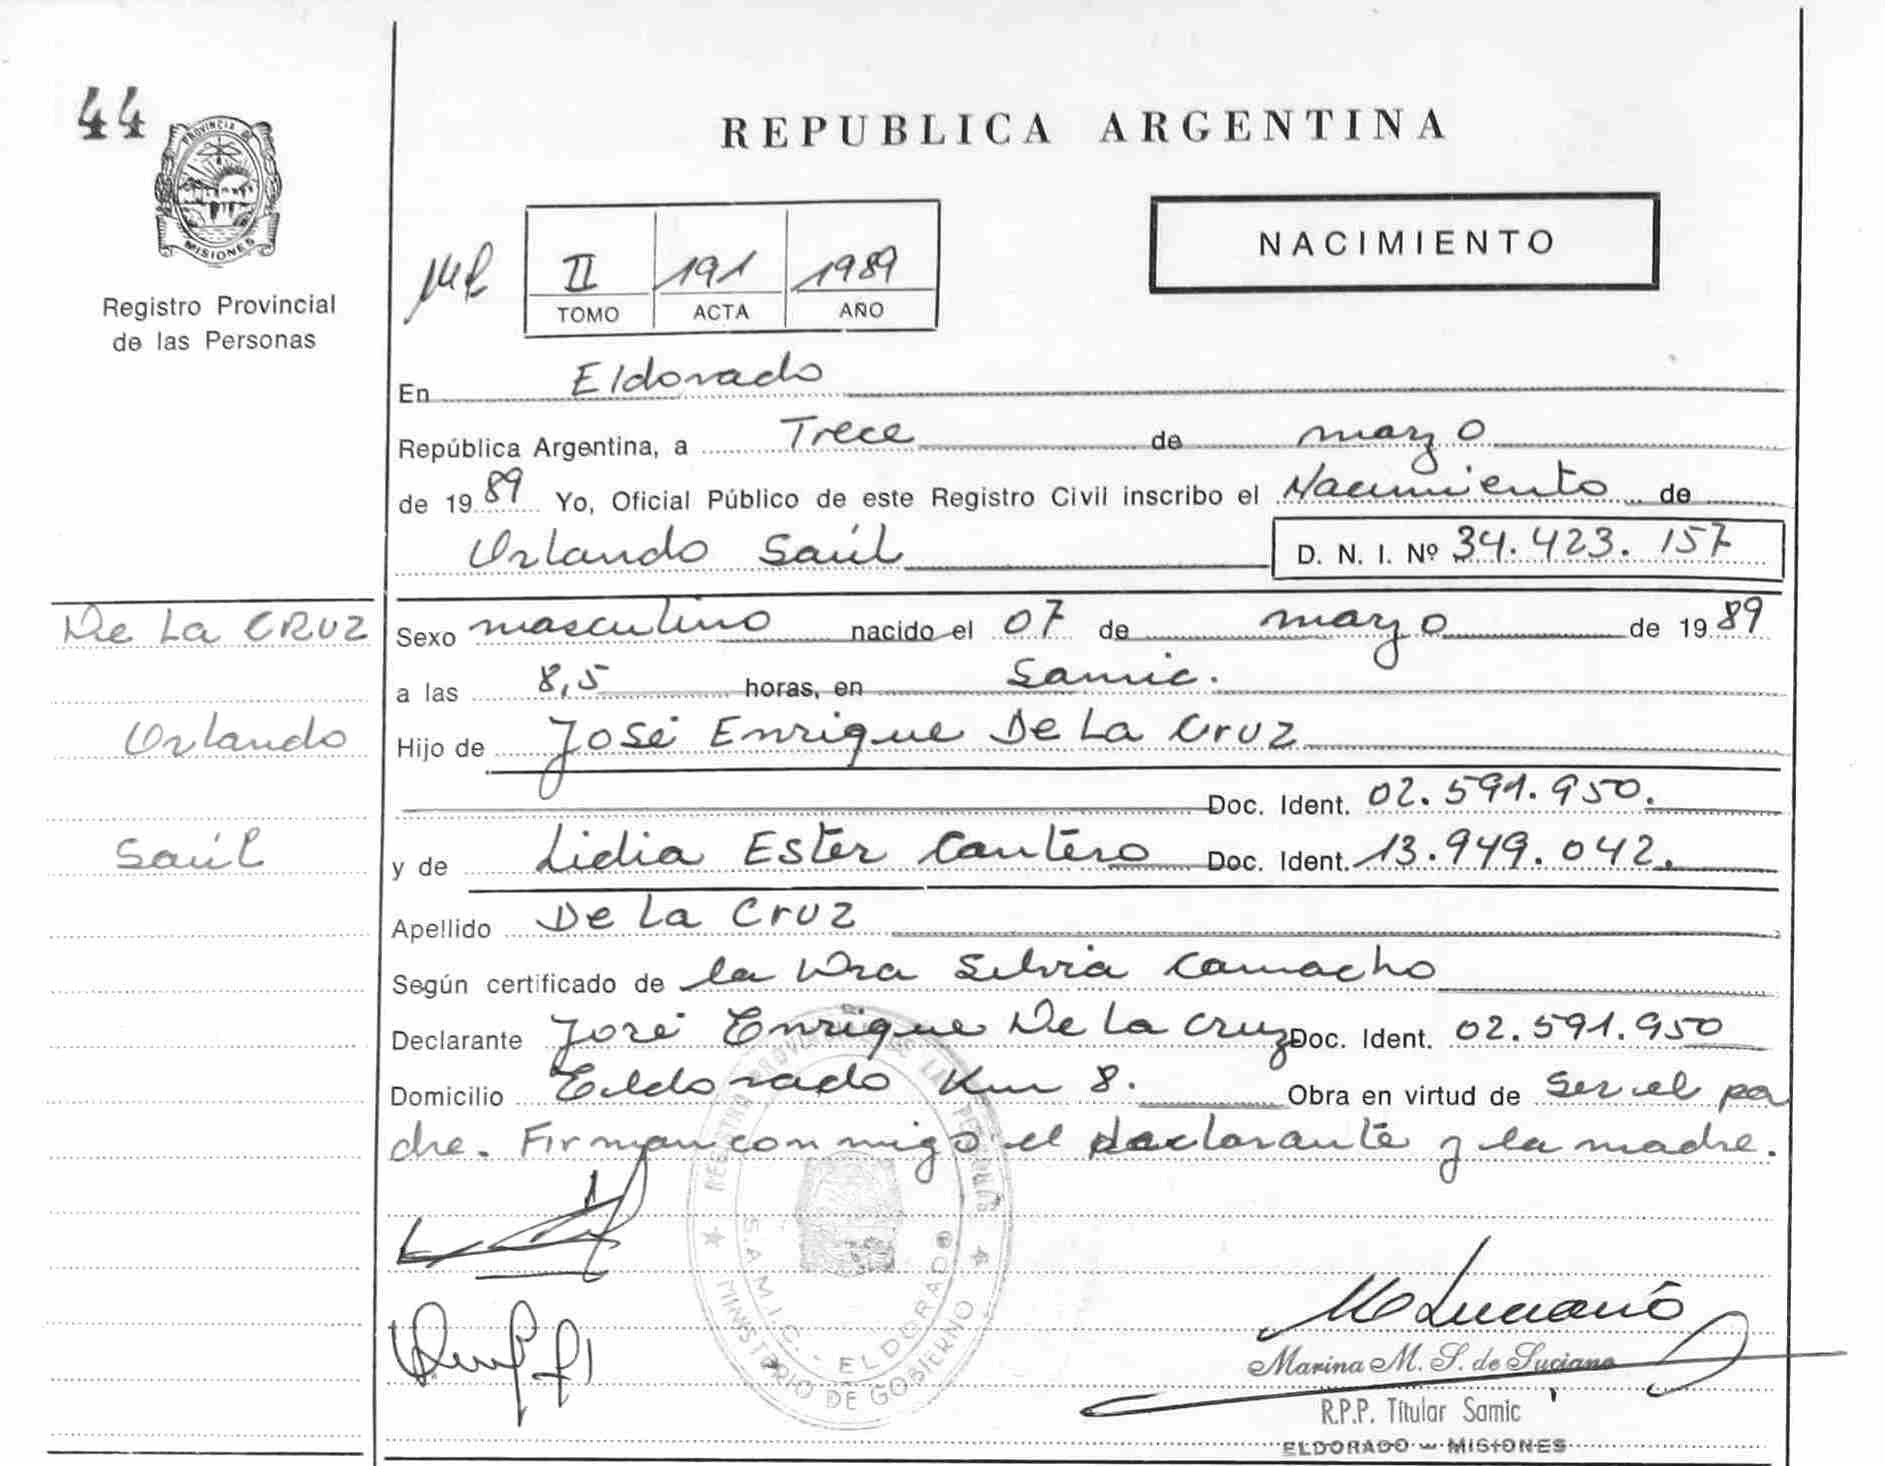 44
PROVINCIA DE
MISIONES
Registro Provincial
de las Personas
REPUBLICA ARGENTINA
NACIMIENTO
II 191 1989
TOMO ACTA AÑO
En Eldorado
República Argentina, a Trece de marzo
de 1989 Yo, Oficial Público de este Registro Civil inscribo el Nacimiento de
Orlando Saúl D. N. I. Nº 34.423.157
De La CRUZ
Orlando
Saúl
Sexo masculino nacido el 07 de marzo de 1989
a las 8,5 horas, en Samic.
Hijo de José Enrique De La Cruz
Doc. Ident. 02.591.950.
y de Lidia Ester Cantero Doc. Ident. 13.949.042.
Apellido De La Cruz
Según certificado de la Dra Silvia Camacho
Declarante José Enrique De La Cruz Doc. Ident. 02.591.950
Domicilio Eldorado Km 8. Obra en virtud de ser el pa
dre. Firman conmigo el declarante y la madre.
REGISTRO PROVINCIAL DE LAS PERSONAS
S.A.M.I.C. - ELDORADO
MINISTERIO DE GOBIERNO
M Luciano
Marina M. S. de Luciano
R.P.P. Titular Samic
ELDORADO - MISIONES